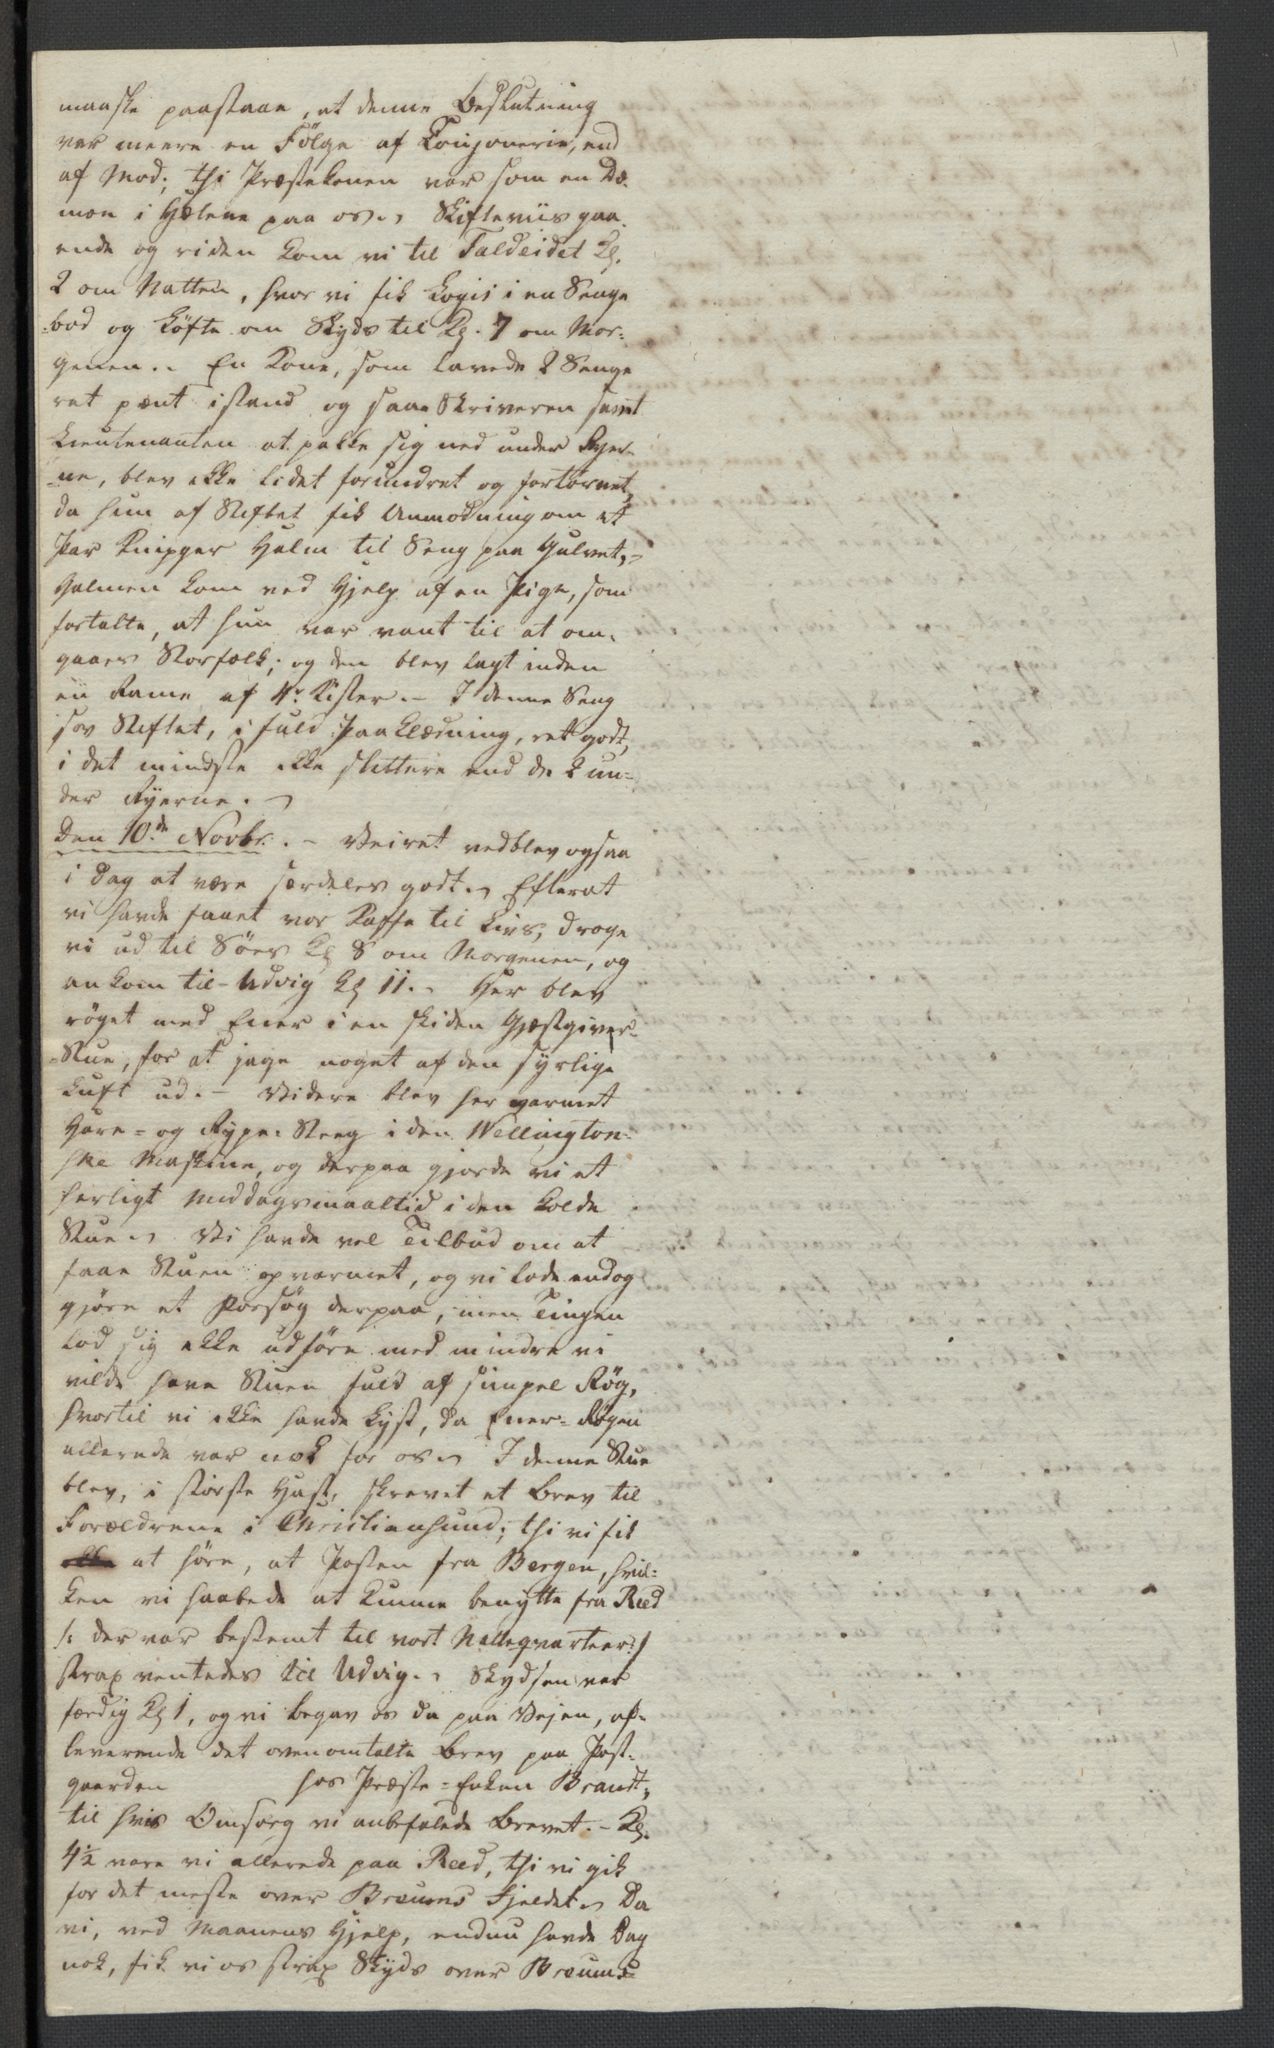 maaske paastaae, at denne Beslutning
var meere en Følge af Coujonerie, end
af Mod; thi Præstekonen var som en Dæ-
mon i Hælene paa os. Skifteviis gaa-
ende og riden kom vi til Faldeidet Kl.
2 om Natten, hvor vi fik Logis i en Senge
-bod og köfte om Skyds til Kl. 7 om Mor-
genen. En Kone, som lavede 2 Senge
ret pænt istand og saae Skriveren samt
Lieutenanten at pakke sig ned under Ryer-
-ne, blev ikke lidet forundret og fortörnet,
da hun af Stiftet fik Anmodning om et
Par Knipper Halm til Seng paa Gulvet, -
Halmen kom ved Hjelp af en Pige, som
fortalte, at hun var vant til at om-
gaaes Storfolk; og den blev lagt inden
en Rame af 4r Kister. - I denne Seng
sov Stiftet, i fuld Paaklædning, ret godt,
i det mindste ikke slettere end de 2 un-
der Ryerne.
Den 10de Novbr. - Veiret vedblev ogsaa
i Dag at være særdeles godt. Efterat
vi havde faaet vor Kaffe til Livs, droge
vi ud til Söes Kl 8 om Morgenen, og
ankom til Udvig Kl 11. Her blev
röget med Ener i en skiden Gjæstgiver-
-Stue, for at jage noget af den syrlige
Luft ud. - Videre blev her varmet
Hare- og Rype-Steeg i den Wellington-
ske Maskine, og derpaa gjorde vi et
herligt Middagsmaaltid i den kolde
Stue. Vi havde vel Tilbud om at
faae Stuen opvarmet, og vi lode endog
gjöre et Forsög derpaa, men Tingen
lod sig ikke udföre med mindre vi
vilde have Stuen fuld af simpel Rög,
hvortil vi ikke havde Lyst, da Ener-Rögen
allerede var nok for os. I denne Stue
blev, i störste Hast, skrevet et Brev til
Forældrene i Christiansund; thi vi fik
at höre, at Posten fra Bergen, hvil-
ken vi haabede at kunne benytte fra Reed
/: der var bestemt til vort Natteqvarteer :/
strax ventedes til Udvig. Skydsen var
færdig Kl 1, og vi begav os da paa Vejen, af-
leverende det ovenomtalte Brev paa Post-
gaarden hos Præste-Enken Brandt,
til hvis Omsorg vi anbefalede Brevet. - Kl.
4½ vare vi allerede paa Reed, thi vi gik
for det meste over Breums Fjeldet. Da
vi, ved Maanens Hjelp, endnu havde Dag
nok, fik vi os strax Skyds over Breums-